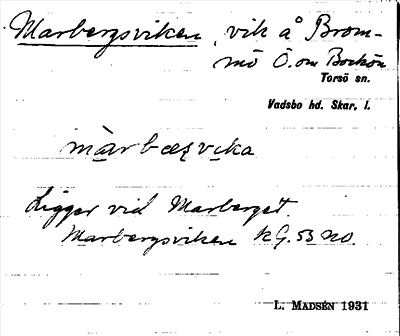 Marbergsviken, vik å Brom-
mö Ö. om Bockön
Torsö sn.
Vadsbo hd. Skar. l.
màrbæʀvika
Ligger vid Marberget.
Marbergsviken kG. 53 NO.
L. MADSÉN 1931